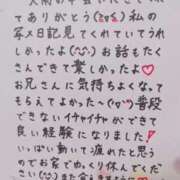 てありがとう(^o^)私の
写メ日記見てくれていてうれ
しかったよ(^^)お話もたくさ
んできて楽しかったよ♡
お兄さんに気持ちよくなって
もらえてよかった(^o^)普段
できないイチャイチャができて
良い経験になりました!
いっぱい動いて疲れたと思う
のでお家でゆっくり休んでくだ